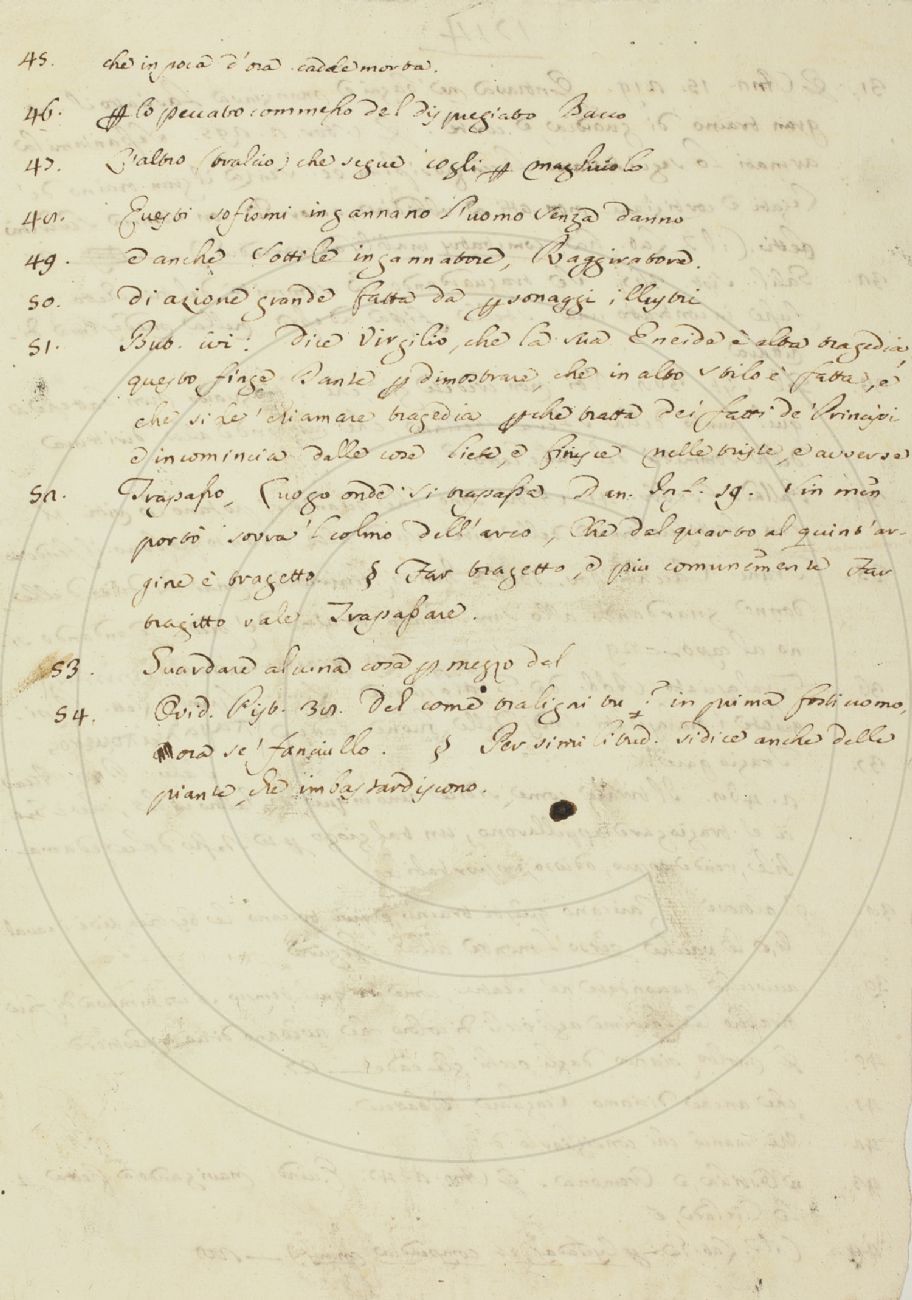 45. che in poca d'ora cadde morta.
46. p lo peccato commesso del dispregiato Bacco
47. L'altro (tralcio) che segue cogli p magliuolo
48. Questi sofismi ingannano l'uomo senza danno
49. e anche Sottile ingannatore, Raggiratore.
50. di azione grande fatta da psonaggi illustri
51. But. ivi: Dice Virgilio, che la sua Eneida è alta tragedia
questo finge Dante p dimostrare, che in alto stilo è fatta, e
che si de' chiamare tragedia pche tratta de' fatti de' Principi
e incomincia dalle cose liete, e finisce nelle triste, e avverse
52. Trapasso, Luogo onde si trapassa Dan. Inf. 19. Sin men
portò sovra 'l colmo dell'arco, Che dal quarto al quint'ar-
gine è tragetto § Far tragetto, e più comunemente Far
tragitto vale Trapassare.
53. Guardare alcuna cosa p mezzo del
54. Ovid. Pist. 38. Del come traligni tu? in prima fosti uomo,
ora se' fanciullo. § Per similitud. si dice anche delle
piante, che imbastardiscono.